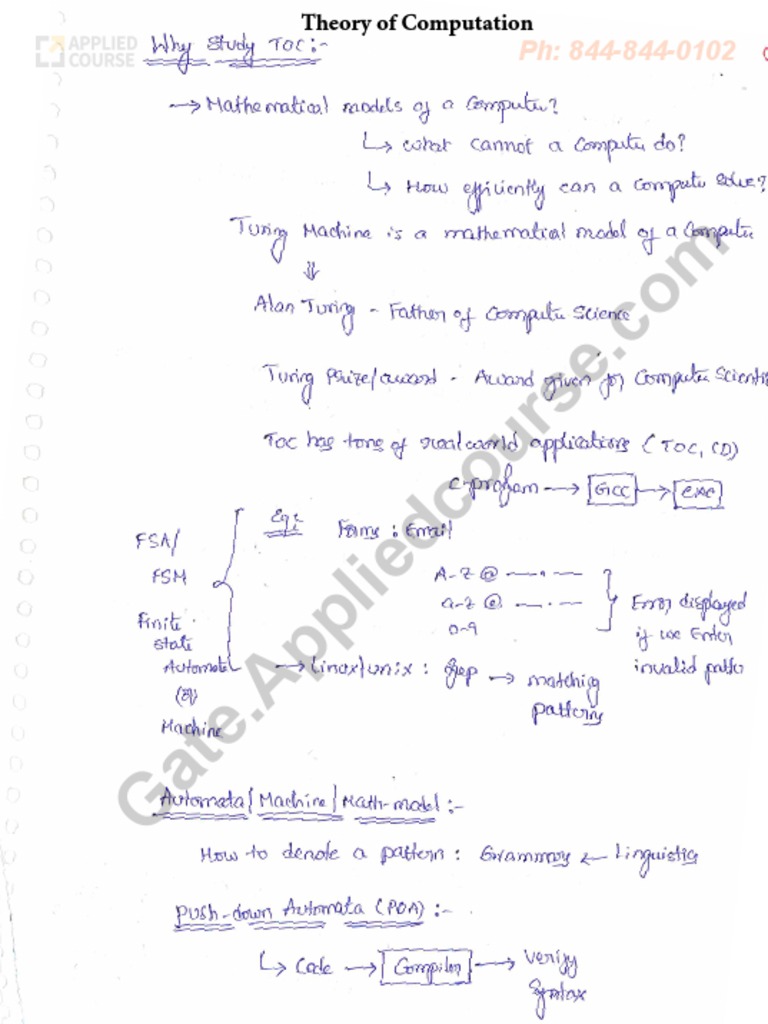 Theory of Computation
APPLIED
COURSE
Ph: 844-844-0102
Why Study TOC:-
→ Mathematical models of a Computer?
↳ What cannot a Computer do?
↳ How efficiently can a computer solve?
Turing Machine is a mathematical model of a Computer
⇓
Alan Turing - Father of Computer Science
Turing Prize/award - Award given for Computer Scienti
TOC has tons of real world applications (TOC, CD)
C-program → GCC → EXC
Eg:
FSA/
FSM
Finite
state
Automata
(or)
Machine
Forms : Email
A-Z @ —.—
a-z @ —.—
0-9
Error displayed
if we Enter
invalid
→ Linux/unix : grep → matching
patterns
Automata/Machine/Math-model :-
How to denote a pattern : Grammar ← Linguistics
Push-down Automata (PDA) :-
↳ Code → Compiler → Verify
Syntax
Gate.Appliedcourse.com